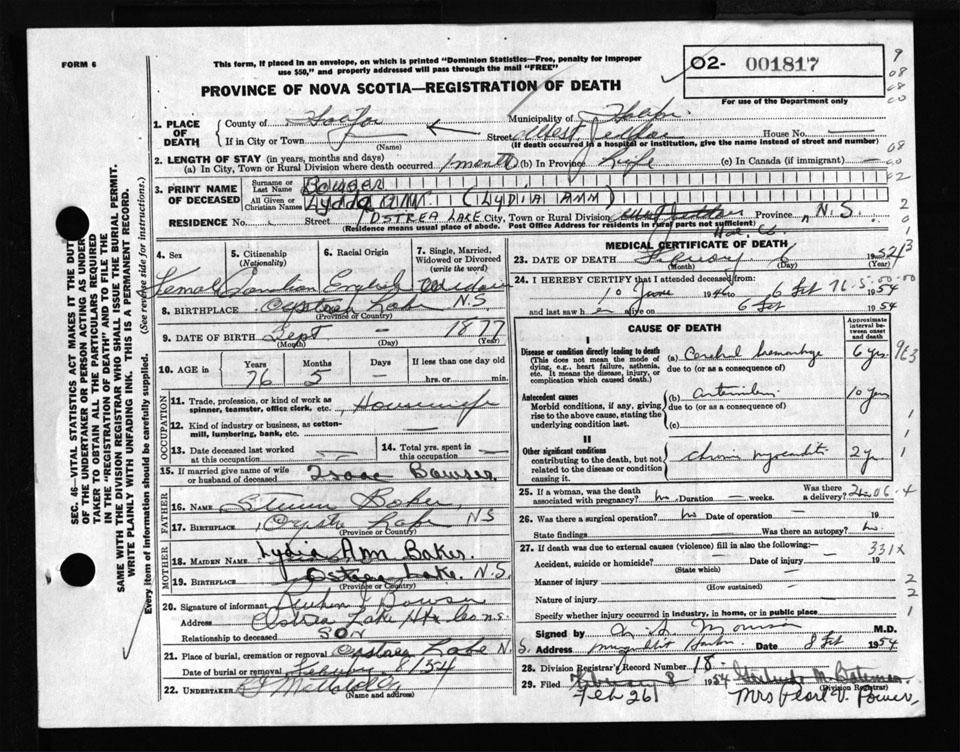 FORM 6
This form, if placed in an envelope, on which is printed "Dominion Statistics—Free, penalty for improper
use $50," and properly addressed will pass through the mail "FREE"
02- 001817
For use of the Department only
PROVINCE OF NOVA SCOTIA—REGISTRATION OF DEATH
1. PLACE OF DEATH
County of
Municipality of
If in City or Town
(Name)
Street West
House No. —
(If death occurred in a hospital or institution, give the name instead of street and number)
2. LENGTH OF STAY (in years, months and days)
(a) In City, Town or Rural Division where death occurred 1 month (b) In Province Life (c) In Canada (if immigrant) —
3. PRINT NAME OF DECEASED
Surname or Last Name Bowser
All Given or Christian Names Lydia Ann (LYDIA ANN)
RESIDENCE No. Street OSTREA LAKE City, Town or Rural Division Province N.S.
(Residence means usual place of abode. Post Office Address for residents in rural parts not sufficient)
Hal. Co.
4. Sex
Female
5. Citizenship
(Nationality)
Canadian
6. Racial Origin
English
7. Single, Married,
Widowed or Divorced
(write the word)
Widow
8. BIRTHPLACE Oyster Lake N.S.
(Province or Country)
9. DATE OF BIRTH Sept — 1877
(Month) (Day) (Year)
10. AGE in
Years Months Days If less than one day old
76 5
hrs. or min.
OCCUPATION
11. Trade, profession, or kind of work as
spinner, teamster, office clerk, etc. Housewife
12. Kind of industry or business, as cotton-
mill, lumbering, bank, etc. —
13. Date deceased last worked
at this occupation —
14. Total yrs. spent in
this occupation —
15. If married give name of wife
or husband of deceased Isaac Bowser
FATHER
16. NAME Baker
17. BIRTHPLACE Oyster Lake NS
(Province or Country)
MOTHER
18. MAIDEN NAME Lydia Ann Baker.
19. BIRTHPLACE Ostrea Lake. N.S.
(Province or Country)
20. Signature of informant Reuben J Bowser
Address Ostrea Lake Hfx Co. N.S.
Relationship to deceased SON
21. Place of burial, cremation or removal Oyster Lake N.S.
Date of burial or removal February 8/54
22. UNDERTAKER
(Name and address)
SEC. 46—VITAL STATISTICS ACT MAKES IT THE DUTY
OF THE UNDERTAKER OR PERSON ACTING AS UNDER-
TAKER TO OBTAIN ALL THE PARTICULARS REQUIRED
IN THE "REGISTRATION OF DEATH" AND TO FILE THE
SAME WITH THE DIVISION REGISTRAR WHO SHALL ISSUE THE BURIAL PERMIT.
WRITE PLAINLY WITH UNFADING INK. THIS IS A PERMANENT RECORD.
Every item of information should be carefully supplied. (See reverse side for instructions.)
MEDICAL CERTIFICATE OF DEATH
23. DATE OF DEATH February 6 1954
(Month) (Day) (Year)
24. I HEREBY CERTIFY that I attended deceased from:
10 June 1946 to 6 Feb 1954
and last saw her alive on 6 Feb 1954
CAUSE OF DEATH
Approximate interval between onset and death
I
Disease or condition directly leading to death
(This does not mean the mode of
dying, e.g., heart failure, asthenia,
etc. It means the disease, injury, or
complication which caused death.)
(a) Cerebral hemorrhage 6 yrs.
due to (or as a consequence of)
Antecedent causes
Morbid conditions, if any, giving
rise to the above cause, stating the
underlying condition last.
(b) 10 yrs
due to (or as a consequence of)
(c)
II
Other significant conditions
contributing to the death, but not
related to the disease or condition
causing it.
Chronic myocarditis 2 yr.
25. If a woman, was the death
associated with pregnancy? no Duration — weeks. Was there a delivery?
26. Was there a surgical operation? no Date of operation —
State findings Was there an autopsy? no.
27. If death was due to external causes (violence) fill in also the following:—
Accident, suicide or homicide? Date of injury
(State which)
331X
Manner of injury
(How sustained)
Nature of injury
Specify whether injury occurred in industry, in home, or in public place
Signed by M.D.
Address Date 8 Feb 1954
28. Division Registrar's Record Number 18
29. Filed February 8 1954 Gertrude M. Bateman
(Division Registrar)
Feb 26 Mrs Pearl V. Power,